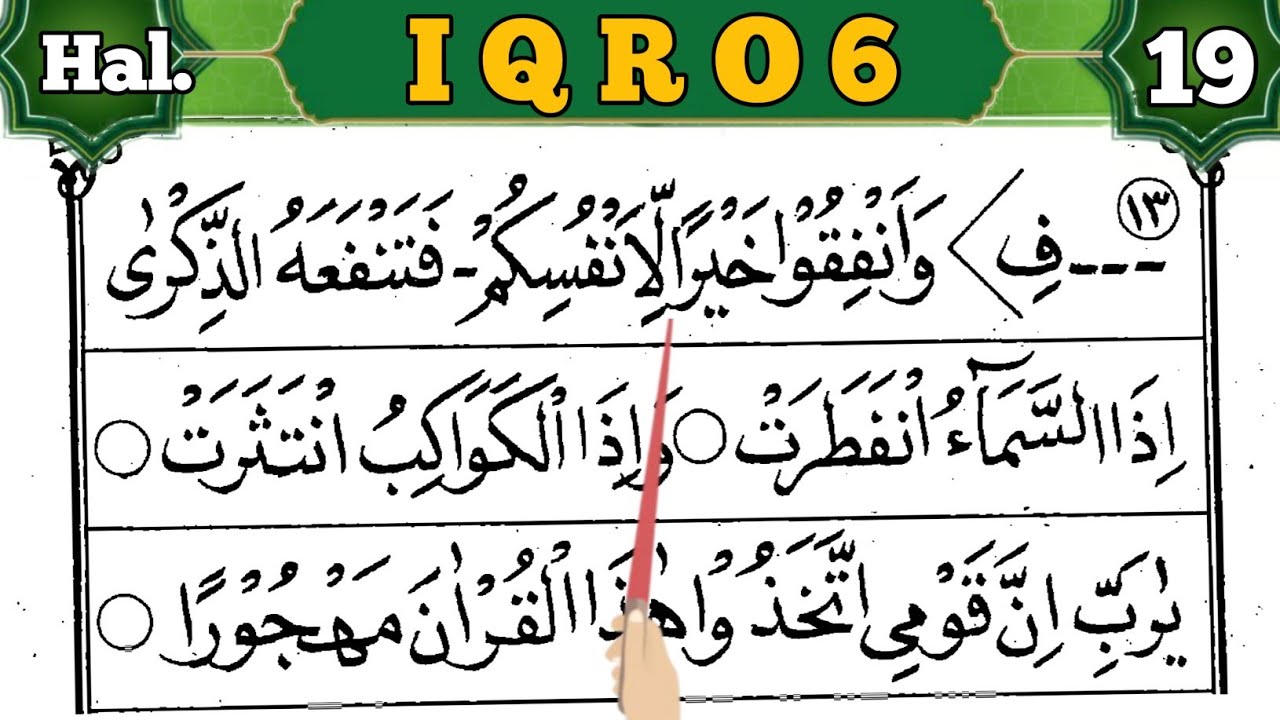 Hal. IQRO 6 19
١٣ ---فِ > وَاَنْفِقُوْا خَيْرًا لِّاَنْفُسِكُمْ - فَتَنْفَعَهُ الذِّكْرٰى
اِذَا السَّمَآءُ انْفَطَرَتْ ○ وَاِذَا الْكَوَاكِبُ انْتَثَرَتْ ○
يٰرَبِّ اِنَّ قَوْمِى اتَّخَذُوْا هٰذَا الْقُرْاٰنَ مَهْجُوْرًا ○